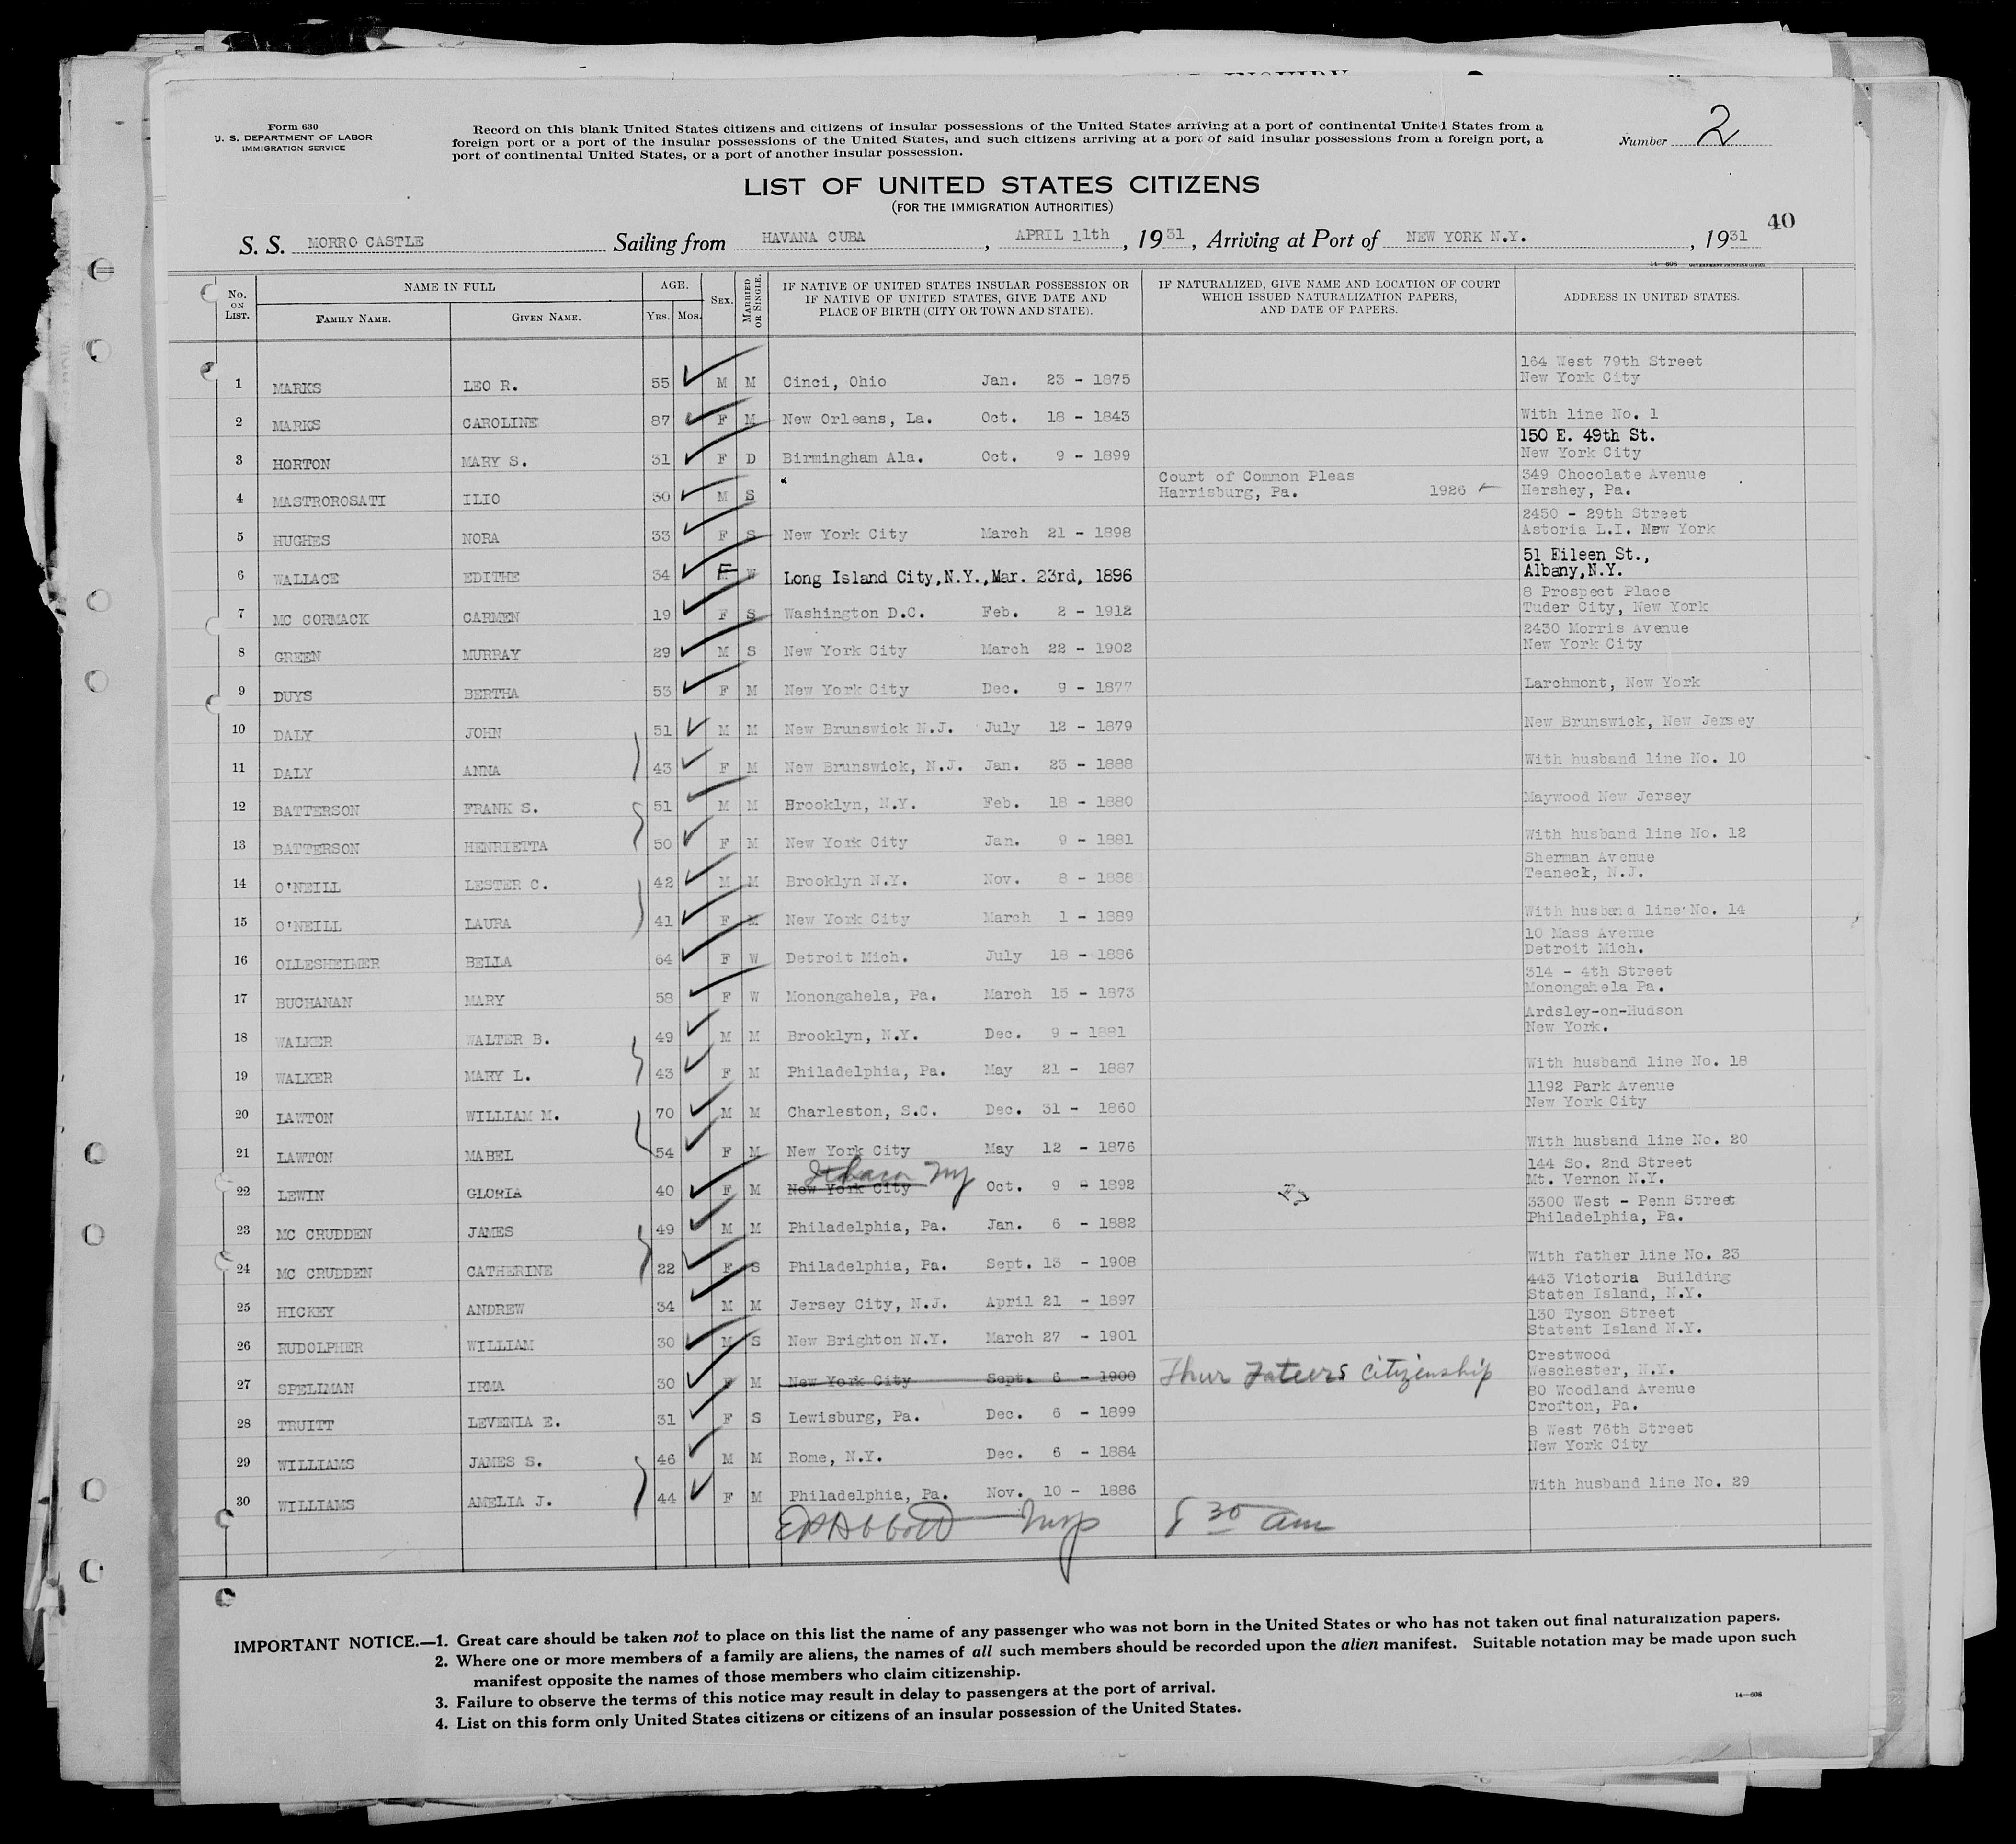 Form 630
U. S. DEPARTMENT OF LABOR
IMMIGRATION SERVICE
Record on this blank United States citizens and citizens of insular possessions of the United States arriving at a port of continental United States from a
foreign port or a port of the insular possessions of the United States, and such citizens arriving at a port of said insular possessions from a foreign port, a
port of continental United States, or a port of another insular possession.
Number 2
LIST OF UNITED STATES CITIZENS
(FOR THE IMMIGRATION AUTHORITIES)
40
S. S. MORRO CASTLE Sailing from HAVANA CUBA, APRIL 11th, 1931, Arriving at Port of NEW YORK N.Y., 1931
No. ON LIST. NAME IN FULL AGE. SEX. MARRIED OR SINGLE. IF NATIVE OF UNITED STATES INSULAR POSSESSION OR IF NATIVE OF UNITED STATES, GIVE DATE AND PLACE OF BIRTH (CITY OR TOWN AND STATE). IF NATURALIZED, GIVE NAME AND LOCATION OF COURT WHICH ISSUED NATURALIZATION PAPERS, AND DATE OF PAPERS. ADDRESS IN UNITED STATES.
FAMILY NAME. GIVEN NAME. YRS. MOS.
164 West 79th Street
1 MARKS LEO R. 55 M M Cinci, Ohio Jan. 23 - 1875 New York City
2 MARKS CAROLINE 87 F M New Orleans, La. Oct. 18 - 1843 With line No. 1
150 E. 49th St.
3 HORTON MARY S. 31 F D Birmingham Ala. Oct. 9 - 1899 New York City
Court of Common Pleas 349 Chocolate Avenue
4 MASTROROSATI ILIO 30 M S Harrisburg, Pa. 1926 Hershey, Pa.
2450 - 29th Street
5 HUGHES NORA 33 F S New York City March 21 - 1898 Astoria L.I. New York
51 Eileen St.,
6 WALLACE EDITHE 34 F W Long Island City,N.Y.,Mar. 23rd, 1896 Albany,N.Y.
8 Prospect Place
7 MC CORMACK CARMEN 19 F S Washington D.C. Feb. 2 - 1912 Tuder City, New York
2430 Morris Avenue
8 GREEN MURRAY 29 M S New York City March 22 - 1902 New York City
9 DUYS BERTHA 53 F M New York City Dec. 9 - 1877 Larchmont, New York
10 DALY JOHN 51 M M New Brunswick N.J. July 12 - 1879 New Brunswick, New Jersey
11 DALY ANNA 43 F M New Brunswick, N.J. Jan. 23 - 1888 With husband line No. 10
12 BATTERSON FRANK S. 51 M M Brooklyn, N.Y. Feb. 18 - 1880 Maywood New Jersey
13 BATTERSON HENRIETTA 50 F M New York City Jan. 9 - 1881 With husband line No. 12
Sherman Avenue
14 O'NEILL LESTER C. 42 M M Brooklyn N.Y. Nov. 8 - 1888 Teaneck, N.J.
15 O'NEILL LAURA 41 F M New York City March 1 - 1889 With husband line No. 14
10 Mass Avenue
16 OLLESHEIMER BELLA 64 F W Detroit Mich. July 18 - 1886 Detroit Mich.
314 - 4th Street
17 BUCHANAN MARY 58 F W Monongahela, Pa. March 15 - 1873 Monongahela Pa.
Ardsley-on-Hudson
18 WALKER WALTER B. 49 M M Brooklyn, N.Y. Dec. 9 - 1881 New York.
19 WALKER MARY L. 43 F M Philadelphia, Pa. May 21 - 1887 With husband line No. 18
1192 Park Avenue
20 LAWTON WILLIAM M. 70 M M Charleston, S.C. Dec. 31 - 1860 New York City
21 LAWTON MABEL 54 F M New York City May 12 - 1876 With husband line No. 20
Ithaca NY 144 So. 2nd Street
22 LEWIN GLORIA 40 F M New York City Oct. 9 - 1892 Mt. Vernon N.Y.
3300 West - Penn Street
23 MC CRUDDEN JAMES 49 M M Philadelphia, Pa. Jan. 6 - 1882 Philadelphia, Pa.
24 MC CRUDDEN CATHERINE 22 F S Philadelphia, Pa. Sept. 13 - 1908 With father line No. 23
443 Victoria Building
25 HICKEY ANDREW 34 M M Jersey City, N.J. April 21 - 1897 Staten Island, N.Y.
130 Tyson Street
26 RUDOLPHER WILLIAM 30 M S New Brighton N.Y. March 27 - 1901 Statent Island N.Y.
Crestwood
27 SPELLMAN IRMA 30 F M New York City Sept. 6 - 1900 Thur Fateers Citizenship Weschester, N.Y.
80 Woodland Avenue
28 TRUITT LEVENIA E. 31 F S Lewisburg, Pa. Dec. 6 - 1899 Crofton, Pa.
8 West 76th Street
29 WILLIAMS JAMES S. 46 M M Rome, N.Y. Dec. 6 - 1884 New York City
30 WILLIAMS AMELIA J. 44 F M Philadelphia, Pa. Nov. 10 - 1886 With husband line No. 29
8 30 am
IMPORTANT NOTICE.—1. Great care should be taken not to place on this list the name of any passenger who was not born in the United States or who has not taken out final naturalization papers.
2. Where one or more members of a family are aliens, the names of all such members should be recorded upon the alien manifest. Suitable notation may be made upon such
manifest opposite the names of those members who claim citizenship.
3. Failure to observe the terms of this notice may result in delay to passengers at the port of arrival.
4. List on this form only United States citizens or citizens of an insular possession of the United States.
14—606